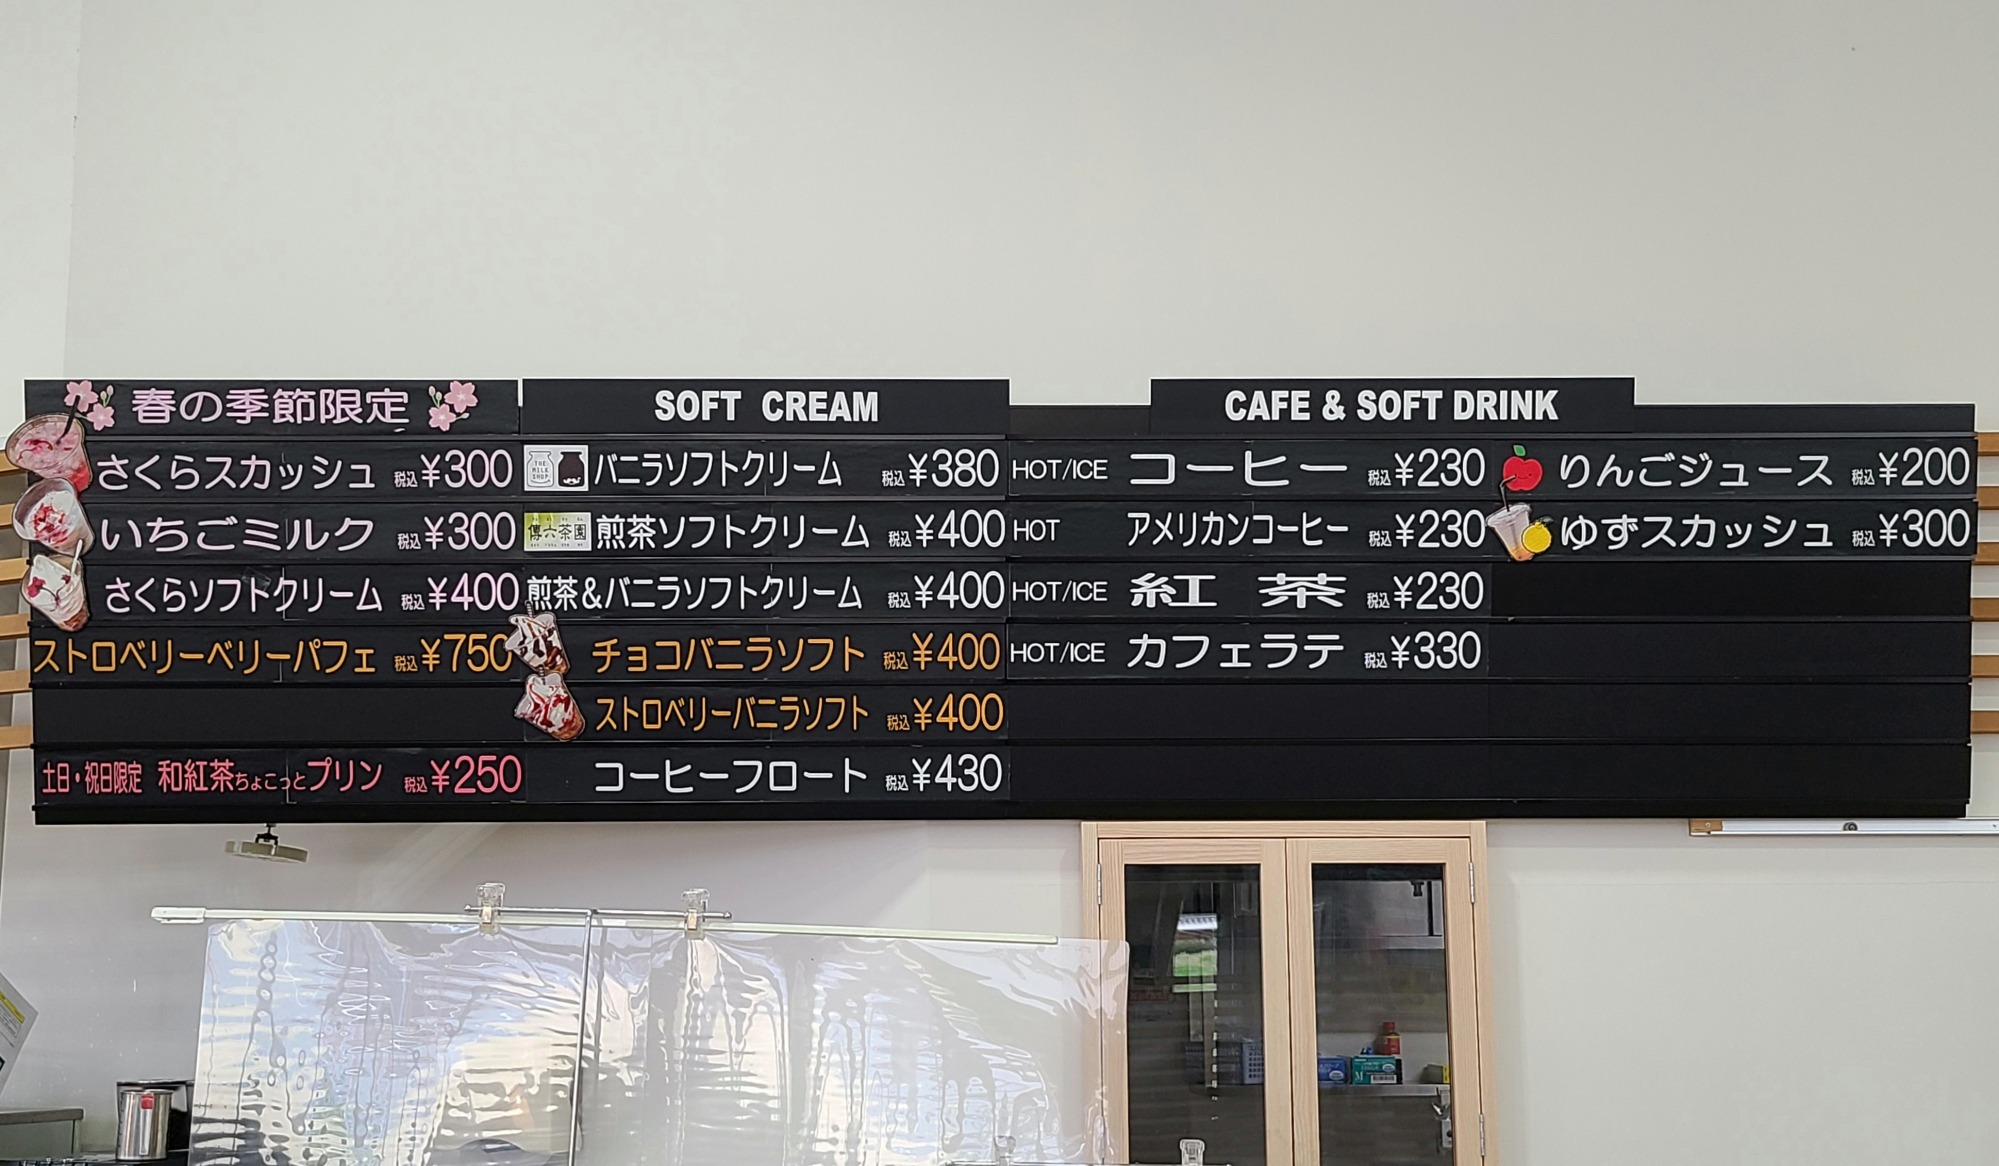 春の季節限定
さくらスカッシュ 税込¥300
いちごミルク 税込¥300
さくらソフトクリーム 税込¥400
ストロベリーベリーパフェ 税込¥750
土日・祝日限定 和紅茶ちょこっとプリン 税込¥250
SOFT CREAM
THE MILK SHOP バニラソフトクリーム 税込¥380
傳六茶園 煎茶ソフトクリーム 税込¥400
煎茶&バニラソフトクリーム 税込¥400
チョコバニラソフト 税込¥400
ストロベリーバニラソフト 税込¥400
コーヒーフロート 税込¥430
CAFE & SOFT DRINK
HOT/ICE コーヒー 税込¥230
HOT アメリカンコーヒー 税込¥230
HOT/ICE 紅 茶 税込¥230
HOT/ICE カフェラテ 税込¥330
りんごジュース 税込¥200
ゆずスカッシュ 税込¥300